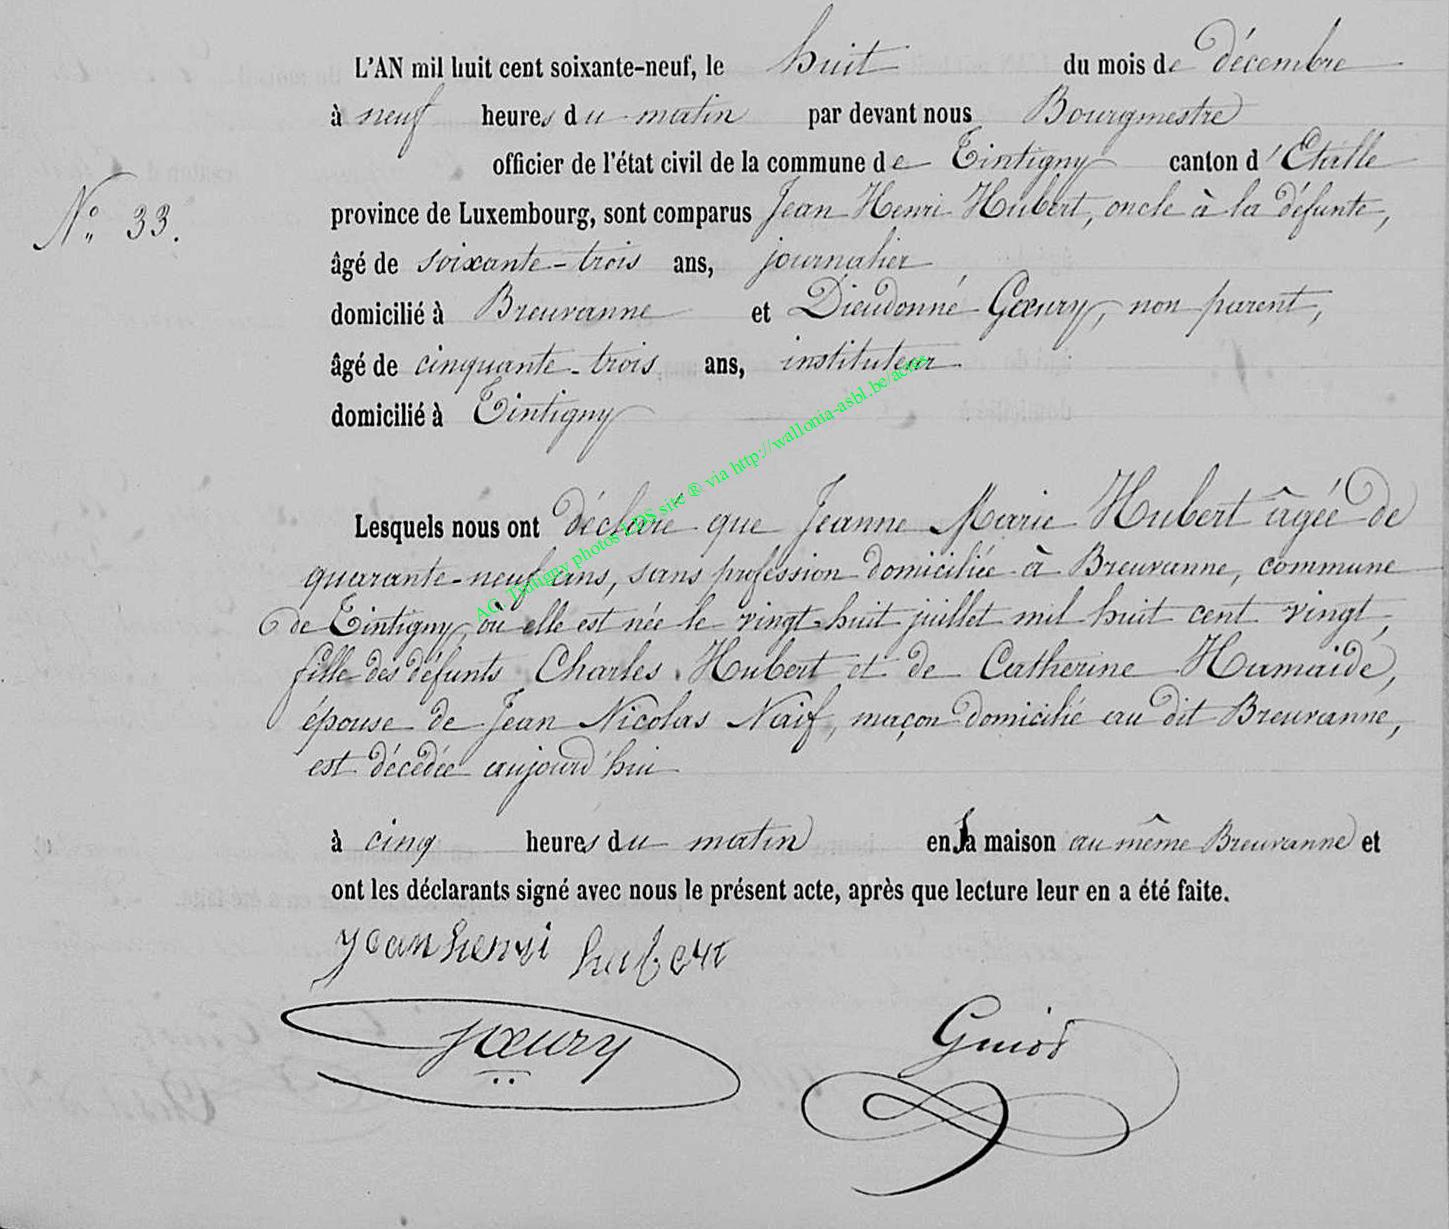 L'AN mil huit cent soixante-neuf, le huit du mois de décembre
à neuf heures du matin par devant nous Bourgmestre
officier de l'état civil de la commune de Tintigny canton d'Etalle
N° 33.
province de Luxembourg, sont comparus Jean Henri Hubert, oncle à la défunte,
âgé de soixante-trois ans, journalier
domicilié à Breuvanne et Dieudonné Gœury, non parent,
âgé de cinquante-trois ans, instituteur
domicilié à Tintigny
Lesquels nous ont déclaré que Jeanne Marie Hubert âgée de
quarante-neuf ans, sans profession domiciliée à Breuvanne, commune
de Tintigny, où elle est née le vingt-huit juillet mil huit cent vingt,
fille des défunts Charles Hubert et de Catherine Humaidé,
épouse de Jean Nicolas Naif, maçon domicilié au dit Breuvanne,
est décédée aujourd'hui
à cinq heures du matin en sa maison au même Breuvanne et
ont les déclarants signé avec nous le présent acte, après que lecture leur en a été faite.
jean henri hubert
Gœury
Guiot
AG Tintigny photos LDS site ® via http://wallonia-asbl.be/actes